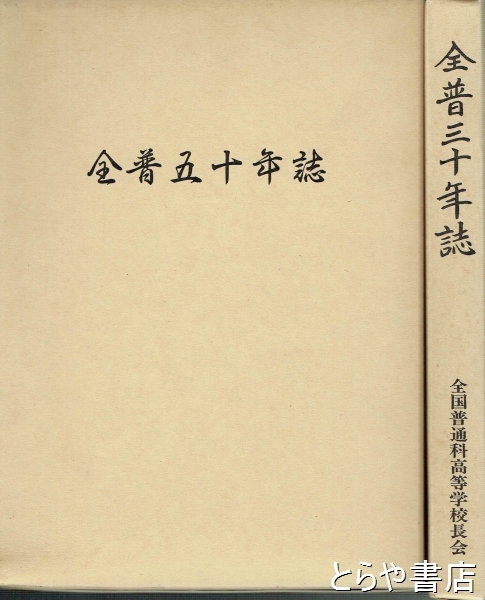 全普五十年誌
全普三十年誌
全国普通科高等学校長会
とらや書店